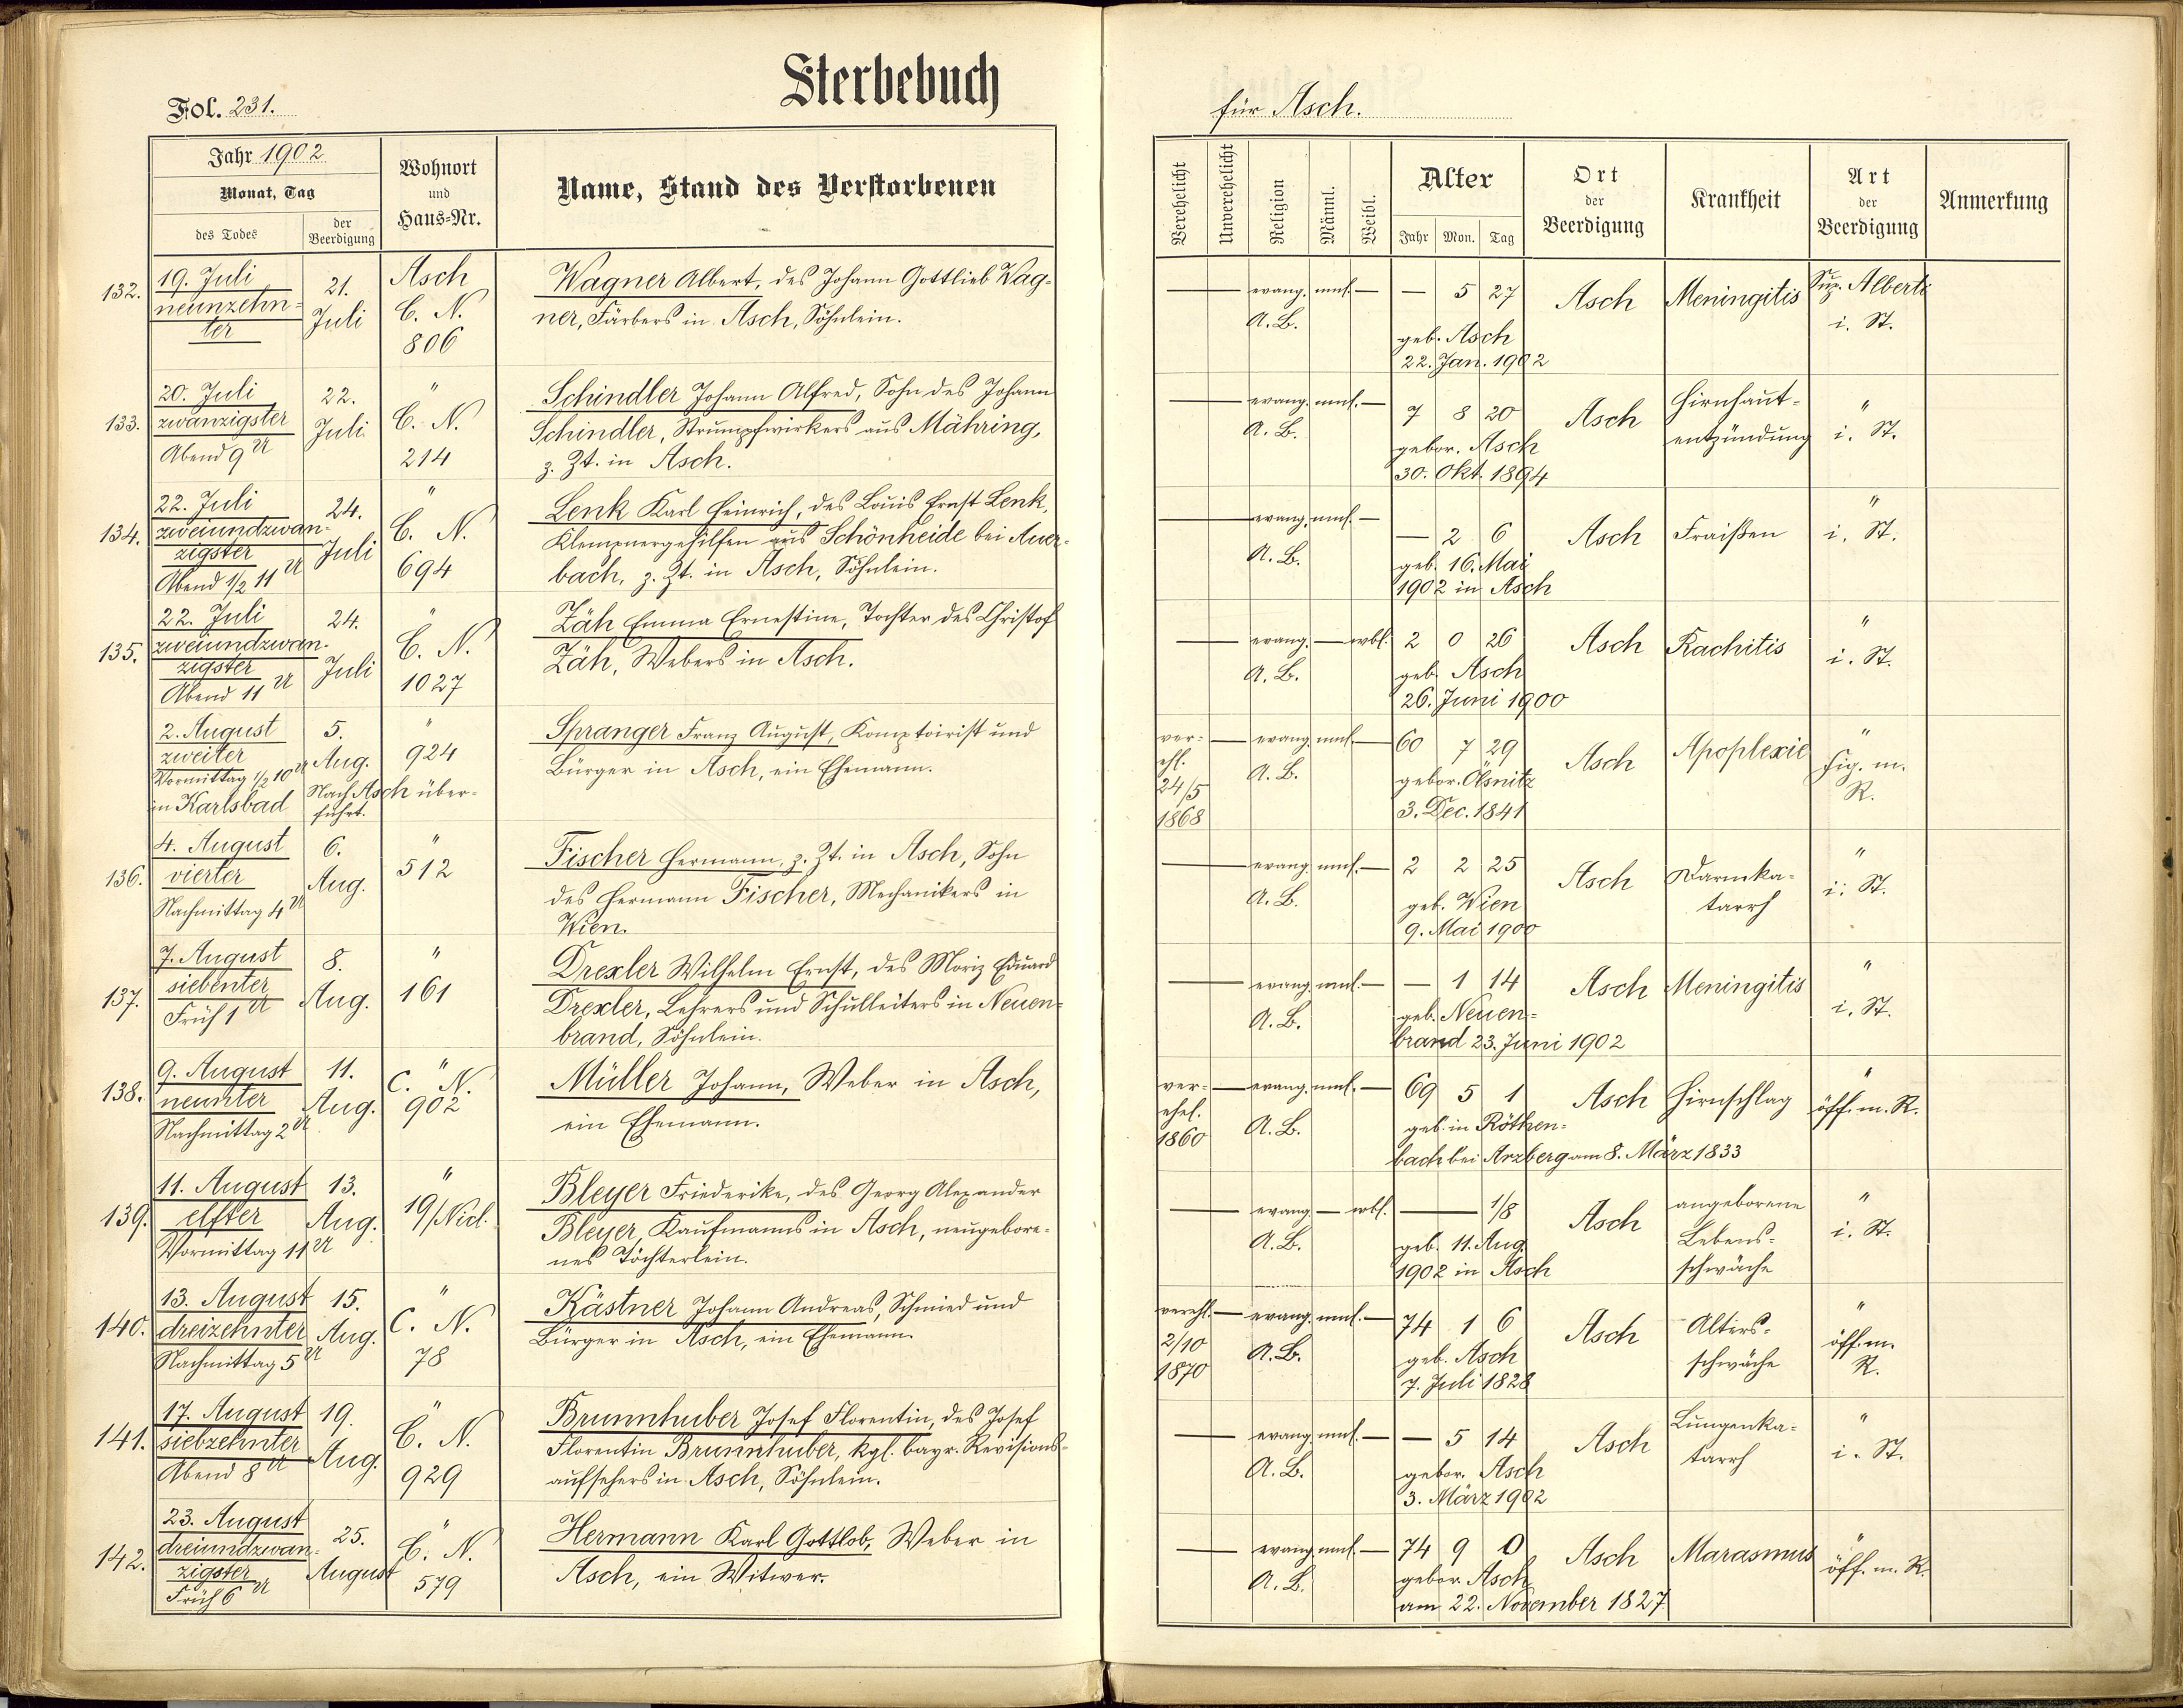 Sterbebuch
Fol. 231.
für Asch.
Jahr 1902
Monat, Tag
des Todes
der Beerdigung
Wohnort und Haus-Nr.
Name, Stand des Verstorbenen
Verehelicht
Unverehelicht
Religion
Männl.
Weibl.
Alter
Jahr Mon. Tag
Ort der Beerdigung
Krankheit
Art der Beerdigung
Anmerkung
132. 19. Juli 21. Asch Wagner Albert, des Johann Gottlieb Wag- — evang. mnl. — — 5 27 Asch Meningitis Sup. Alberti
neunzehn- Juli C. N. ner, Färbers in Asch, Söhnlein. A. B. i. St.
ter 806 geb. Asch
22. Jan. 1902
133. 20. Juli 22. " Schindler Johann Alfred, Sohn des Johann — evang. mnl. — 7 8 20 Asch Hirnhaut- "
zwanzigster Juli C. N. Schindler, Strumpfwirkers aus Mähring, A. B. gebor. Asch entzündung i. St.
Abend 9 U 214 z. Zt. in Asch. 30. Okt. 1894
134. 22. Juli 24. " Lenk Karl Heinrich, des Louis Ernst Lenk, — evang. mnl. — — 2 6 Asch Fraißen "
zweiundzwan- Juli C. N. Klempnergehilfen aus Schönheide bei Auer- A. B. geb. 16. Mai i. St.
zigster 694 bach, z. Zt. in Asch, Söhnlein. 1902 in Asch
Abend 1/2 11 U
135. 22. Juli 24. " Zäh Emma Ernestine, Tochter des Christof — evang. — wbl. 2 0 26 Asch Rachitis "
zweiundzwan- Juli C. N. Zäh, Webers in Asch. A. B. geb. Asch i. St.
zigster 1027 26. Juni 1900
Abend 11 U
2. August 5. " Spranger Franz August, Komptoirist und ver- — evang. mnl. — 60 7 29 Asch Apoplexie "
zweiter Aug. 924 Bürger in Asch, ein Ehemann. ehl. A. B. gebor. Ölsnitz Fig. m.
Vormittag 1/2 10 U Nach Asch über- 24/5 3. Dec. 1841 R.
in Karlsbad führt. 1868
136. 4. August 6. " Fischer Hermann, z. Zt. in Asch, Sohn — evang. mnl. — 2 2 25 Asch Darmka- "
vierter Aug. 512 des Hermann Fischer, Mechanikers in A. B. geb. Wien tarrh i. St.
Nachmittag 4 U Wien. 9. Mai 1900
137. 7. August 8. " Drexler Wilhelm Ernst, des Moriz Eduard — evang. mnl. — — 1 14 Asch Meningitis "
siebenter Aug. 161 Drexler, Lehrers und Schulleiters in Neuen- A. B. geb. Neuen- i. St.
Früh 1 U brand, Söhnlein. brand 23. Juni 1902
138. 9. August 11. " Müller Johann, Weber in Asch, ver- — evang. mnl. — 69 5 1 Asch Hirnschlag "
neunter Aug. C. N. 902 ein Ehemann. ehel. A. B. geb. in Röthen- öff. m. R.
Nachmittag 2 U 1860 bach bei Arzberg am 8. März 1833
139. 11. August 13. " Bleyer Friederike, des Georg Alexander — evang. — wbl. — 1/8 Asch angeborene "
elfter Aug. 19/Nicl. Bleyer, Kaufmanns in Asch, neugebore- A. B. geb. 11. Aug. Lebens- i. St.
Vormittag 11 U nes Töchterlein. 1902 in Asch schwäche
140. 13. August 15. " Kästner Johann Andreas, Schmied und verehl. — evang. mnl. — 74 1 6 Asch Alters- "
dreizehnter Aug. C. N. Bürger in Asch, ein Ehemann. 2/10 A. B. geb. Asch schwäche öff. m.
Nachmittag 5 U 78 1870 7. Juli 1828 R.
141. 17. August 19. " Brunnhuber Josef Florentin, des Josef — evang. mnl. — — 5 14 Asch Lungenka- "
siebzehnter Aug. C. N. Florentin Brunnhuber, kgl. bayr. Revisions- A. B. gebor. Asch tarrh i. St.
Abend 8 U 929 aufsehers in Asch, Söhnlein. 3. März 1902
142. 23. August 25. " Hermann Karl Gottlob, Weber in — evang. mnl. — 74 9 0 Asch Marasmus "
dreiundzwan- August C. N. Asch, ein Witwer. A. B. gebor. Asch öff. m. R.
zigster 579 am 22. November 1827
Früh 6 U